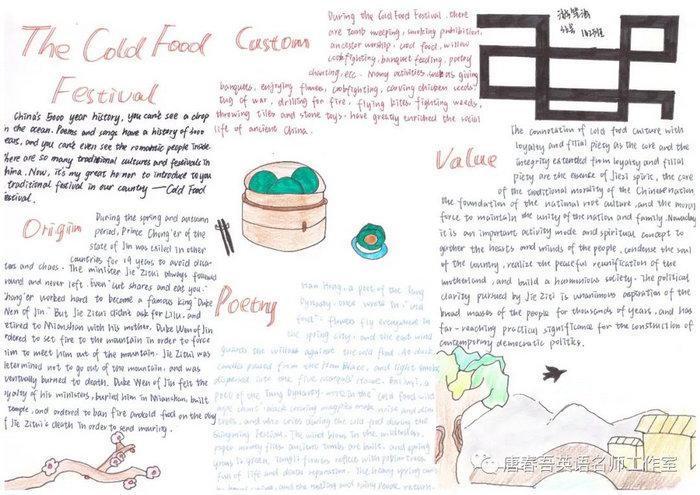 The Cold Food
Festival
China's 5000 year history, you can't see a drop
in the ocean. Poems and songs have a history of
ears, and you can't even see the romantic people inside.
here are so many traditional cultures and festivals in
hina. Now, it's my great honor to introduce to you
traditional festival in our country — Cold Food
estival.
Custom
During the Cold Food Festival, there
are tomb sweeping, smoking prohibition,
ancestor worship, cold food, willow
cockfighting, banquet feeding, poetry
chanting, etc. Many activities such as giving
banquets, enjoying flowers, cockfighting, carving chicken seeds,
tug of war, drilling for fire, flying kites, fighting weeds,
throwing tiles and stone toys, have greatly enriched the social
life of ancient China.
Origin
During the spring and autumn
period, Prince Chong'er of the
state of Jin was exiled in other
countries for 19 years to avoid disa-
ters and chaos. The minister Jie Zitui always followed
round and never left. Even "cut shares and eat you."
hong'er worked hard to become a famous king "Duke
Wen of Jin." But Jie Zitui didn't ask for Lilu, and
etired to Mianshan with his mother. Duke Wen of Jin
rdered to set fire to the mountain in order to force
im to meet him out of the mountain. Jie Zitui was
etermined not to go out of the mountain, and was
ventually burned to death. Duke Wen of Jin felt the
oyalty of his ministers, buried him in Mianshan, built
temple, and ordered to ban fire and cold food on the day
f Jie Zitui's death in order to send mouring.
Poetry
Han Hong, a poet of the Tang
Dynasty, once wrote in "cold
food": flowers fly everywhere in
the spring city, and the east wind
guards the willows against the cold food. At dusk,
candles passed from the Han Palace, and light smoke
dispersed into the five marquis' House. Bai Juyi, a
poet of the Tang Dynasty, wrote in the cold food wild
crowing magpies make noise and dim
trees, and who cries during the cold food during the
Qingming Festival. The wind blows in the wilderness,
paper money flies, ancient tombs are built, and spring
grass is green.
full of life and death separation.
Value
The connotation of cold food culture with
loyalty and filial piety as the core and the
integrity extended from loyalty and filial
piety are the essence of Jiezi spirit, the core
of the traditional morality of the Chinese nation
the foundation of the national root culture, and the moral
force to maintain the unity of the nation and family. Nowaday
it is an important activity mode and spiritual concept to
gather the hearts and minds of the people, condense the soul
of the country, realize the peaceful reunification of the
motherland, and build a harmonious society. The political
clarity pursued by Jie Zizi is unanimous aspiration of the
broad masses of the people for thousands of years, and has
far-reaching practical significance for the construction of
contemporary democratic politics.
唐春吾英语名师工作室